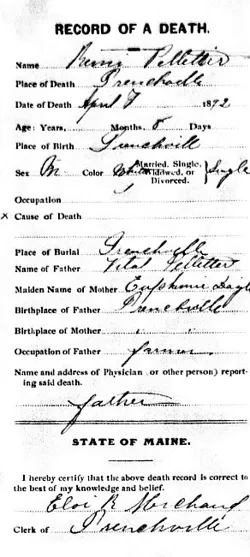 RECORD OF A DEATH.
Name Remi Pelletier
Place of Death Frenchville
Date of Death April 7 1892
Age: Years, Months, 8 Days
Place of Birth Frenchville
Sex M Color White Married, Single, Widowed, or Divorced. } Single
Occupation
x Cause of Death
Place of Burial Frenchville
Name of Father Vital Pelletier
Maiden Name of Mother Euphemie Daigle
Birthplace of Father Frenchville
Birthplace of Mother " "
Occupation of Father farmer
Name and address of Physician (or other person) report-
ing said death.
father
STATE OF MAINE.
I hereby certify that the above death record is correct to
the best of my knowledge and belief.
Eloi R Merchand
Clerk of Frenchville